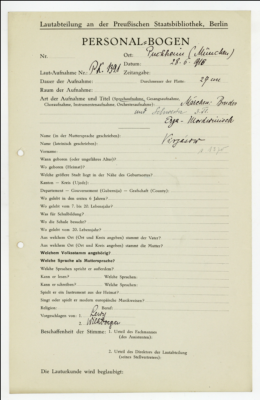 Lautabteilung an der Preußischen Staatsbibliothek, Berlin
PERSONAL-BOGEN
Nr. Ort: Puchheim (München)
Datum: 28. 6. 1918
Laut-Aufnahme Nr. PK. 1321 Zeitangabe:
Dauer der Aufnahme: Durchmesser der Platte: 27 cm
Raum der Aufnahme:
Art der Aufnahme und Titel (Sprechaufnahme, Gesangsaufnahme, Choraufnahme, Instrumentenaufnahme, Orchesteraufnahme): Märchen
Erza-Mordwinisch
Name (in der Muttersprache geschrieben):
Name (lateinisch geschrieben):
Vorname:
Wann geboren (oder ungefähres Alter)?
Wo geboren (Heimat)?
Welche größere Stadt liegt in der Nähe des Geburtsortes?
Kanton — Kreis (Ujedz):
Department — Gouvernement (Gubernija) — Grafschaft (County):
Wo gelebt in den ersten 6 Jahren?
Wo gelebt vom 7. bis 20. Lebensjahr?
Was für Schulbildung?
Wo die Schule besucht?
Wo gelebt vom 20. Lebensjahr?
Aus welchem Ort (Ort und Kreis angeben) stammt der Vater?
Aus welchem Ort (Ort und Kreis angeben) stammt die Mutter?
Welchem Volksstamm angehörig?
Welche Sprache als Muttersprache?
Welche Sprachen spricht er außerdem?
Kann er lesen? Welche Sprachen?
Kann er schreiben? Welche Sprachen?
Spielt er ein Instrument aus der Heimat?
Singt oder spielt er modern europäische Musikweisen?
Religion: Beruf:
Vorgeschlagen von: 1. Lewy
2.
Beschaffenheit der Stimme: 1. Urteil des Fachmannes (des Assistenten):
2. Urteil des Direktors der Lautabteilung (seines Stellvertreters):
Die Lauturkunde wird beglaubigt: